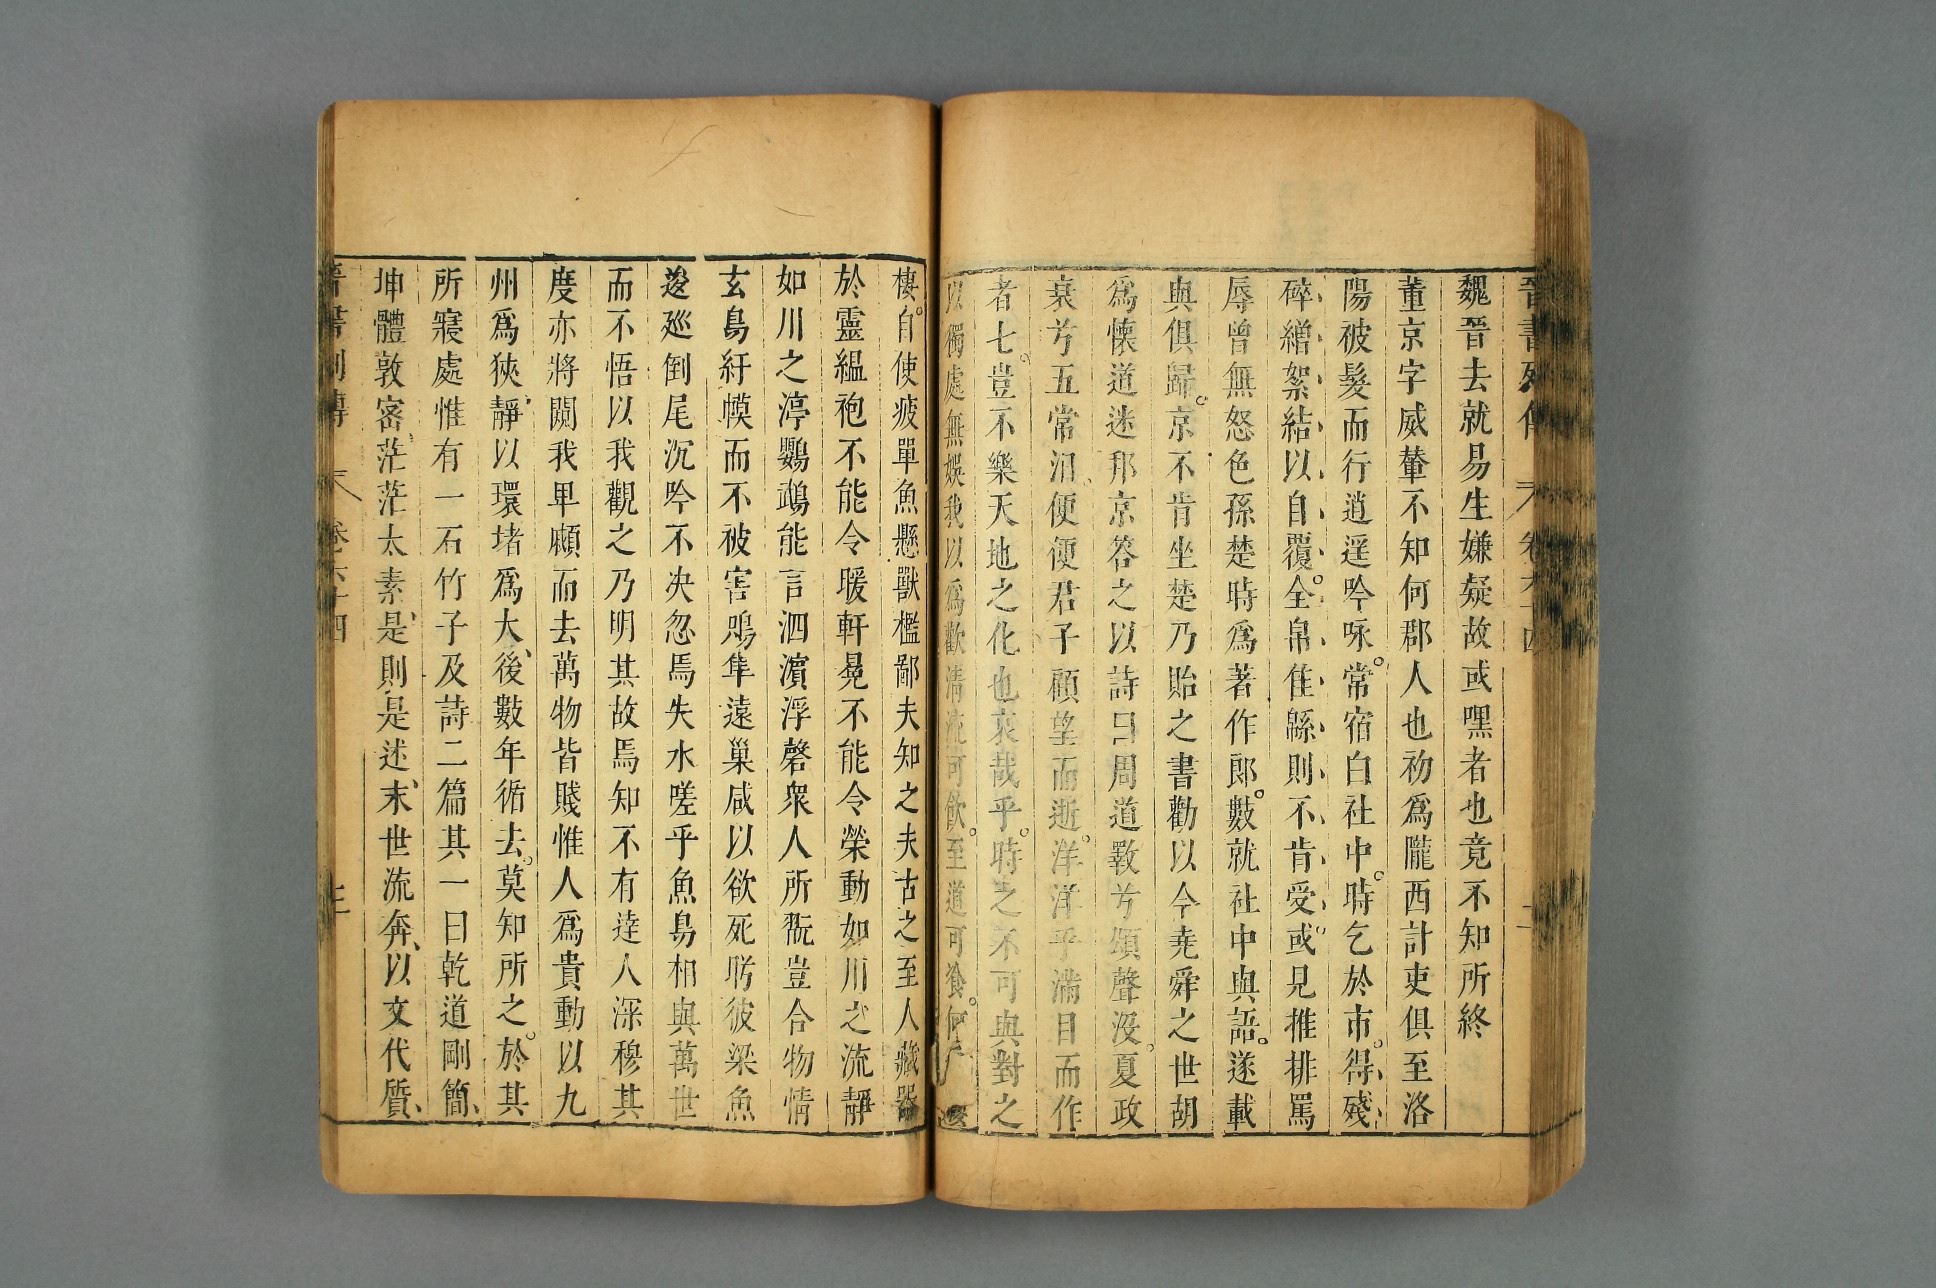 晉書列傳 卷六十四
魏晉去就易生嫌疑故或嘿者也竟不知所終
董京字威輦不知何郡人也初爲隴西計吏俱至洛
陽被髮而行逍遥吟咏常宿白社中時乞於市得殘
碎繒絮結以自覆全帛隹緜則不肯受或見推排罵
辱曾無怒色孫楚時爲著作郎數就社中與語遂載
與俱歸京不肯坐楚乃貽之書勸以今堯舜之世胡
爲懐道迷邦京答之以詩曰周道斁兮頌聲没夏政
衰兮五常汨便便君子顧望而逝洋洋乎滿目而作
者七豈不樂天地之化也哀哉乎時之不可與對之
以獨處無娯我以爲歡清流可飲至道可飡何
棲自使疲單魚懸獸檻鄙夫知之夫古之至人藏器
於靈緼袍不能令暖軒冕不能令榮動如川之流靜
如川之渟鸚鵡能言泗濵浮磬衆人所翫豈合物情
玄鳥紆幙而不被害鳲隼遠巢咸以欲死眄彼梁魚
逡廵倒尾沉吟不决忽焉失水嗟乎魚鳥相與萬世
而不悟以我觀之乃明其故焉知不有逹人深穆其
度亦將闚我顰頞而去萬物皆賤惟人爲貴動以九
州爲狹靜以環堵爲大後數年循去莫知所之於其
所寢處惟有一石竹子及詩二篇其一曰乾道剛簡
坤體敦密茫茫太素是則是述末世流奔以文代質
晉書列傳 卷六十四